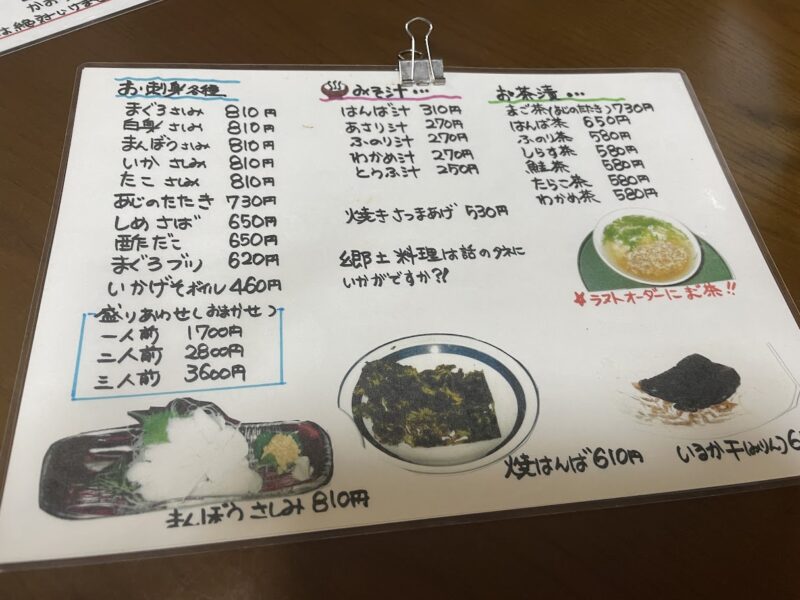 は絶対いけま
お刺身各種
まぐろさしみ 810円
白身さしみ 810円
まんぼうさしみ 810円
いかさしみ 810円
たこさしみ 810円
あじのたたき 730円
しめさば 650円
酢だこ 650円
まぐろブツ 620円
いかげそボイル 460円
盛りあわせ(おまかせ)
一人前 1700円
二人前 2800円
三人前 3600円
まんぼうさしみ 810円
みそ汁…
はんば汁 310円
あさり汁 270円
ふのり汁 270円
わかめ汁 270円
とうふ汁 250円
焼きさつまあげ 530円
郷土料理は話のタネに
いかがですか?!
焼はんば 610円
お茶漬…
まご茶(あじのたたき) 730円
はんば茶 650円
ふのり茶 580円
しらす茶 580円
鮭茶 580円
たらこ茶 580円
わかめ茶 580円
★ラストオーダーにお茶!!
いるか干(みりん)